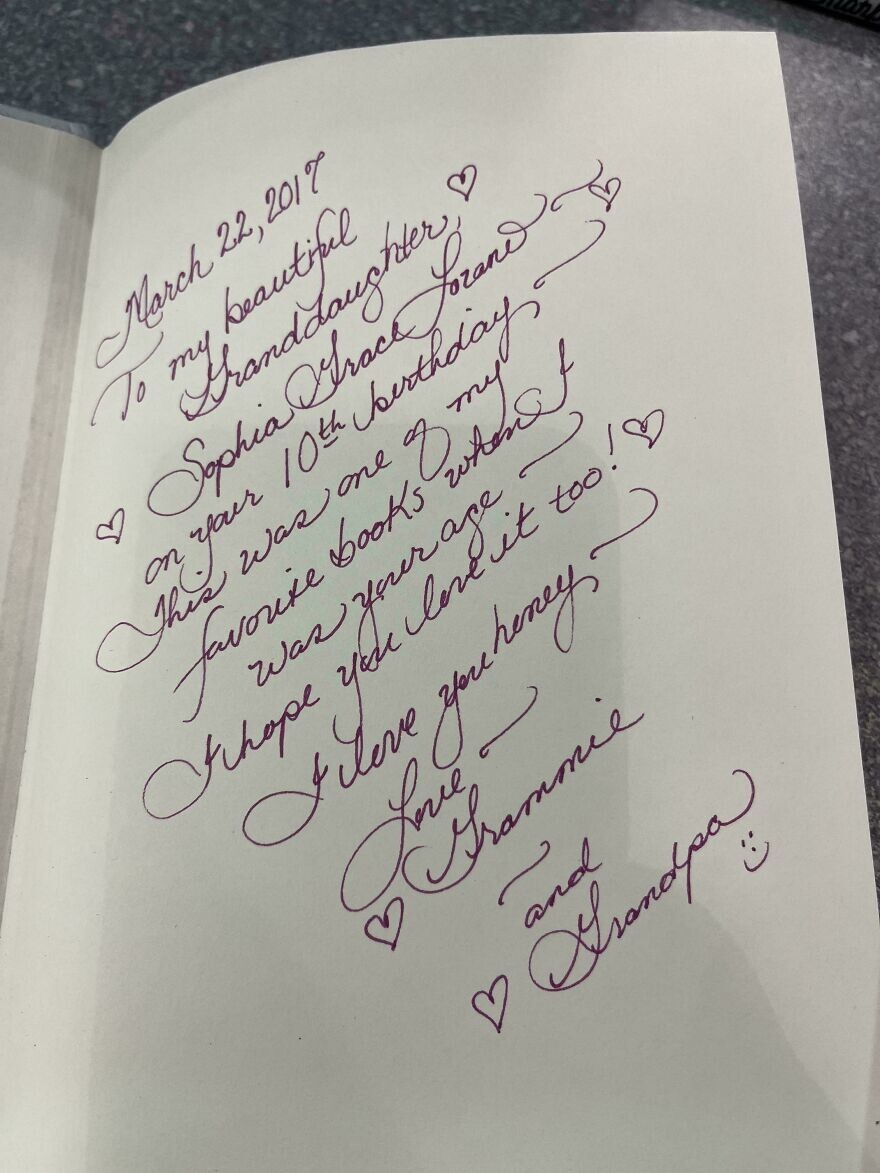 March 22, 2017
To my beautiful
Granddaughter,
Sophia Grace
on your 10th birthday
This was one of my
favorite books when I
was your age
I hope you love it too!
I love you honey
Love
Grammie
and
Grandpa